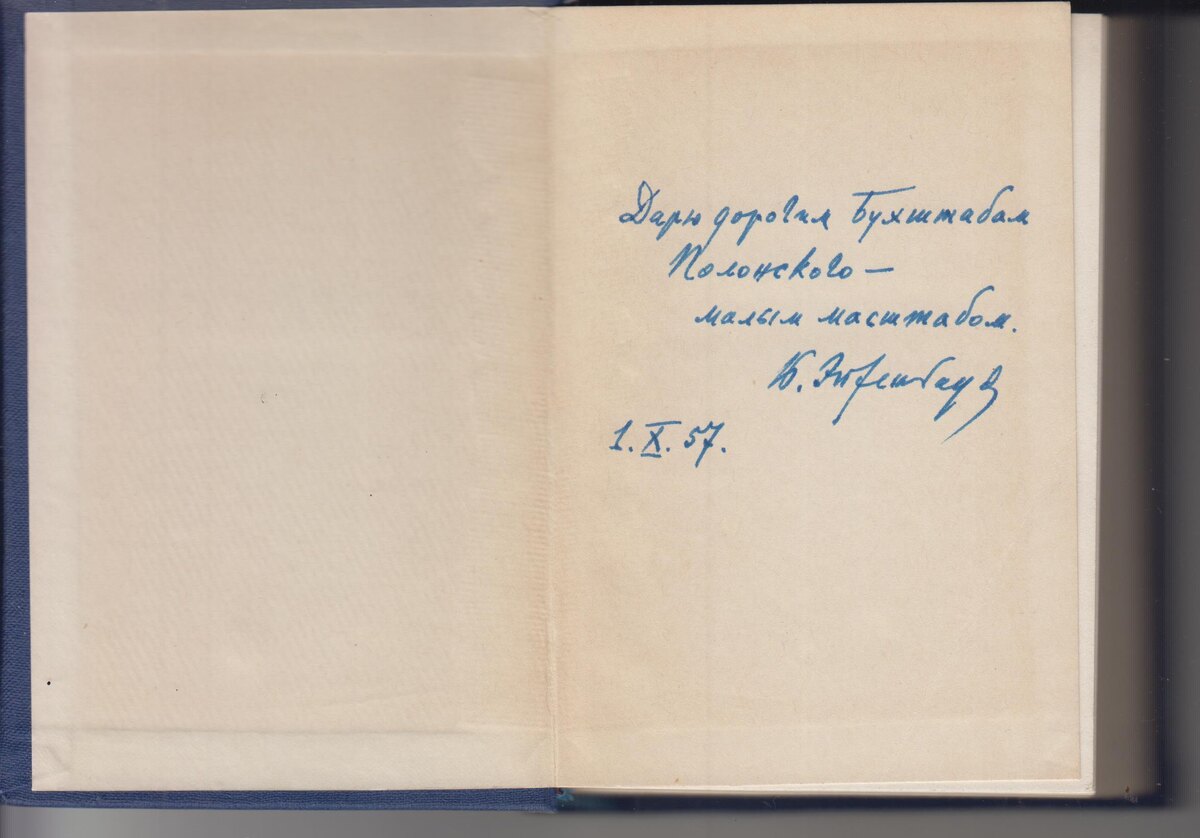 Дарю дорогим Бухштабам
Полонского —
малым масштабом.
Б. Эйхенбаум
1.X.57.